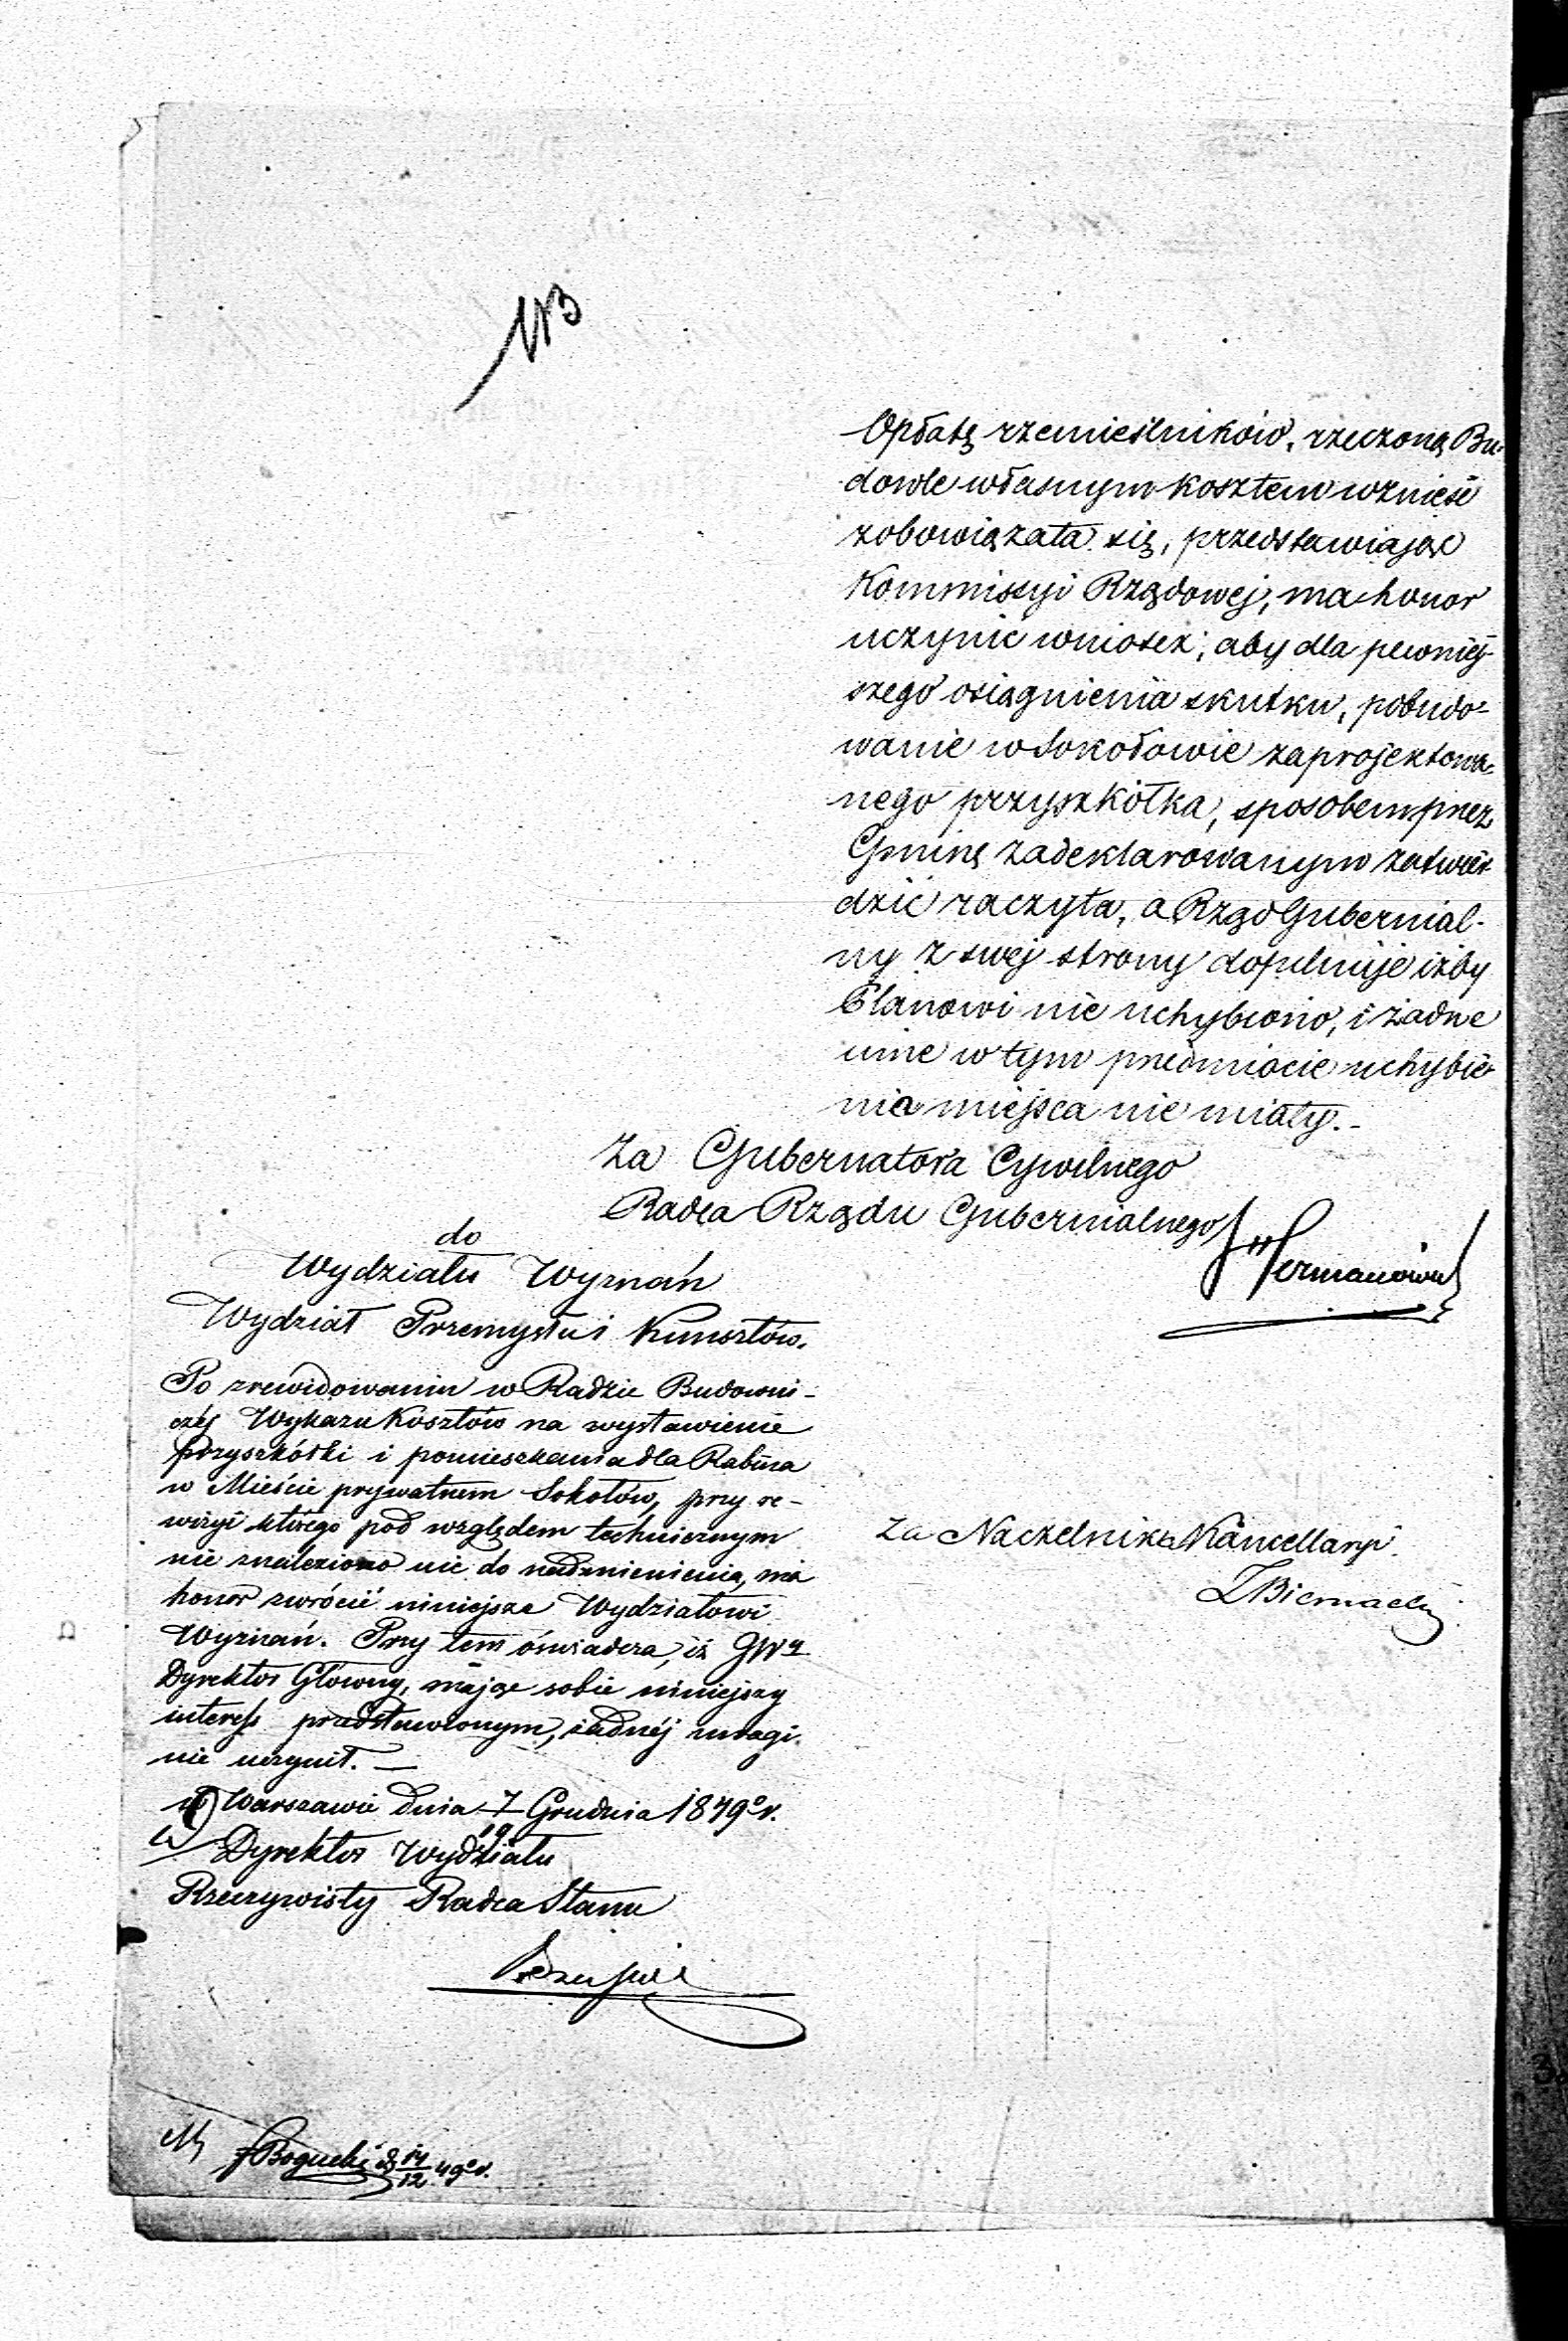 Opłatę rzemieślników, rzeczoną Bu-
dowle własnym kosztem wznieść
zobowiązała się, przedstawiając
Kommissyi Rządowej, ma honor
uczynić wniosek, aby dla pewniej-
szego osiągnienia skutku, pobudo-
wanie w Sokołowie zaprojektowa-
nego przyszkółka, sposobem przez
Gminę zadeklarowanym zatwier
dzić raczyła, a Rząd Gubernial-
ny z swej strony dopilnuje iżby
Planowi nie uchybiono, i żadne
inne w tym przedmiocie uchybie-
nia miejsca nie miały.-
Za Gubernatora Cywilnego
Radca Rządu Gubernialnego
Hermanowicz
Za Naczelnika Kancellaryi
Biernacki
do
Wydziału Wyznań
Wydział Przemysłu i Kunsztów.
Po zrewidowaniu w Radzie Budowni-
czéj Wykazu Kosztów na wystawienie
przyszkółki i pomieszkania dla Rabina
w Mieście prywatnem Sokołów, przy re-
wizyi którego pod względem technicznym
nie znaleziono nic do nadmienienia, ma
honor zwrócić niniejsze Wydziałowi
Wyznań. Przy tem oświadcza, iż JWy
Dyrektor Główny, mając sobie niniejszy
interess przedstawionym, żadnéj uwagi
nie uczynił. —
w Warszawie dnia 7/19 Grudnia 1849o r.
Dyrektor Wydziału
Rzeczywisty Radca Stanu
Bogucki d 14/12 49o r.